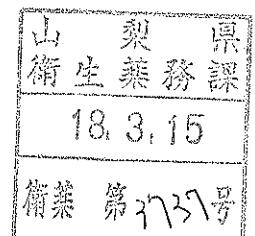 山梨県
衛生薬務課
18.3.15
衛薬 第3737号